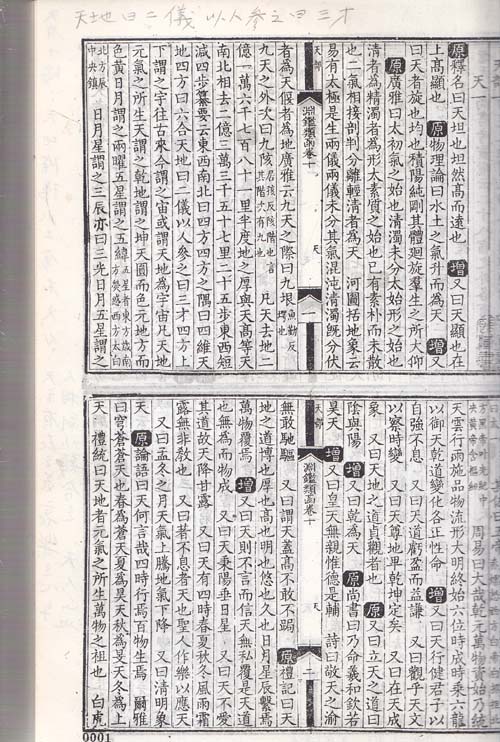 天地曰二儀以人參之曰三才
原釋名曰天坦也坦然高而遠也 增又曰天顯也在
上高顯也 原物理論曰水土之氣升而為天 增又
曰天者旋也均也積陽純剛其體迴旋羣生之所大仰
原廣雅曰太初氣之始也清濁未分太始形之始也
清者為精濁者為形太素質之始也已有素朴而未散
也二氣相接剖判分離輕清者為天 河圖括地象云
易有太極是生兩儀兩儀未分其氣混沌清濁既分伏
天部
淵鑑類函卷一
天
一
者為天偃者為地廣雅云九天之際曰九垠
九天之外次曰九陔 凡天去地二
億一萬六千七百八十一里半度地之厚與天高等天
南北相去二億三萬三千五百七十七里二十五步東西短
減四步纂要云東西南北曰四方四方之隅曰四維天
地四方曰六合天地曰二儀以人參之曰三才四方上
下謂之宇往古來今謂之宙或謂天地為宇宙凡天地
元氣之所生天謂之乾地謂之坤天圓而色元地方而
色黃日月謂之兩曜五星謂之五緯
北方辰中央鎮 日月星謂之三辰亦曰三光日月五星謂之
周易曰大哉乾元萬物資始乃統
天雲行雨施品物流形大明終始六位時成時乘六龍
以御天乾道變化各正性命 增又曰天行健君子以
自強不息 又曰天道虧盈而益謙 又曰觀乎天文
以察時變 又曰天尊地卑乾坤定矣 又曰在天成
象 又曰天地之道貞觀者也 原又曰立天之道曰
陰與陽 增又曰乾為天 原尚書曰乃命羲和欽若
昊天 增又曰皇天無親惟德是輔 詩曰敬天之渝
天部
淵鑑類函卷十
天
二
無敢馳驅 又曰謂天蓋高不敢不跼 原禮記曰天
地之道博也厚也高也明也悠也久也日月星辰繫焉
萬物覆焉 增又曰天則不言而信天無私覆是天道
也無為而物成 又曰天秉陽垂日星 又曰天不愛
其道故天降甘露 又曰天有四時春夏秋冬風雨霜
露無非教也 又曰著不息者天也聖人作樂以應天
又曰孟冬之月天氣上騰地氣下降 又曰清明象
天 原論語曰天何言哉四時行焉百物生焉 爾雅
曰穹蒼蒼天也春為蒼天夏為昊天秋為旻天冬為上
天 禮統曰天地者元氣之所生萬物之祖也 白虎
0001